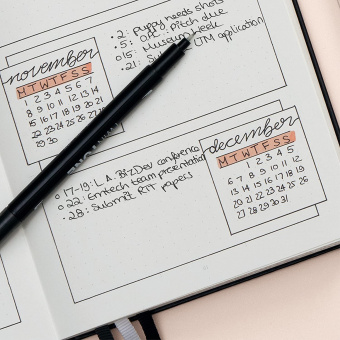 november
M T W T F S S
1 2 3 4 5 6 7
8 9 10 11 12 13 14
15 16 17 18 19 20 21
22 23 24 25 26 27 28
29 30
• 2: puppy needs shots
• 5: pitch due
○ 15: Museum
• 21: Sub LTM application
december
M T W T F S S
1 2 3 4 5
6 7 8 9 10 11 12
13 14 15 16 17 18 19
20 21 22 23 24 25 26
27 28 29 30 31
○ 17-19: L.A. Biz Dev conference
○ 22: Emtech team presentation
• 28: Submit RIT papers